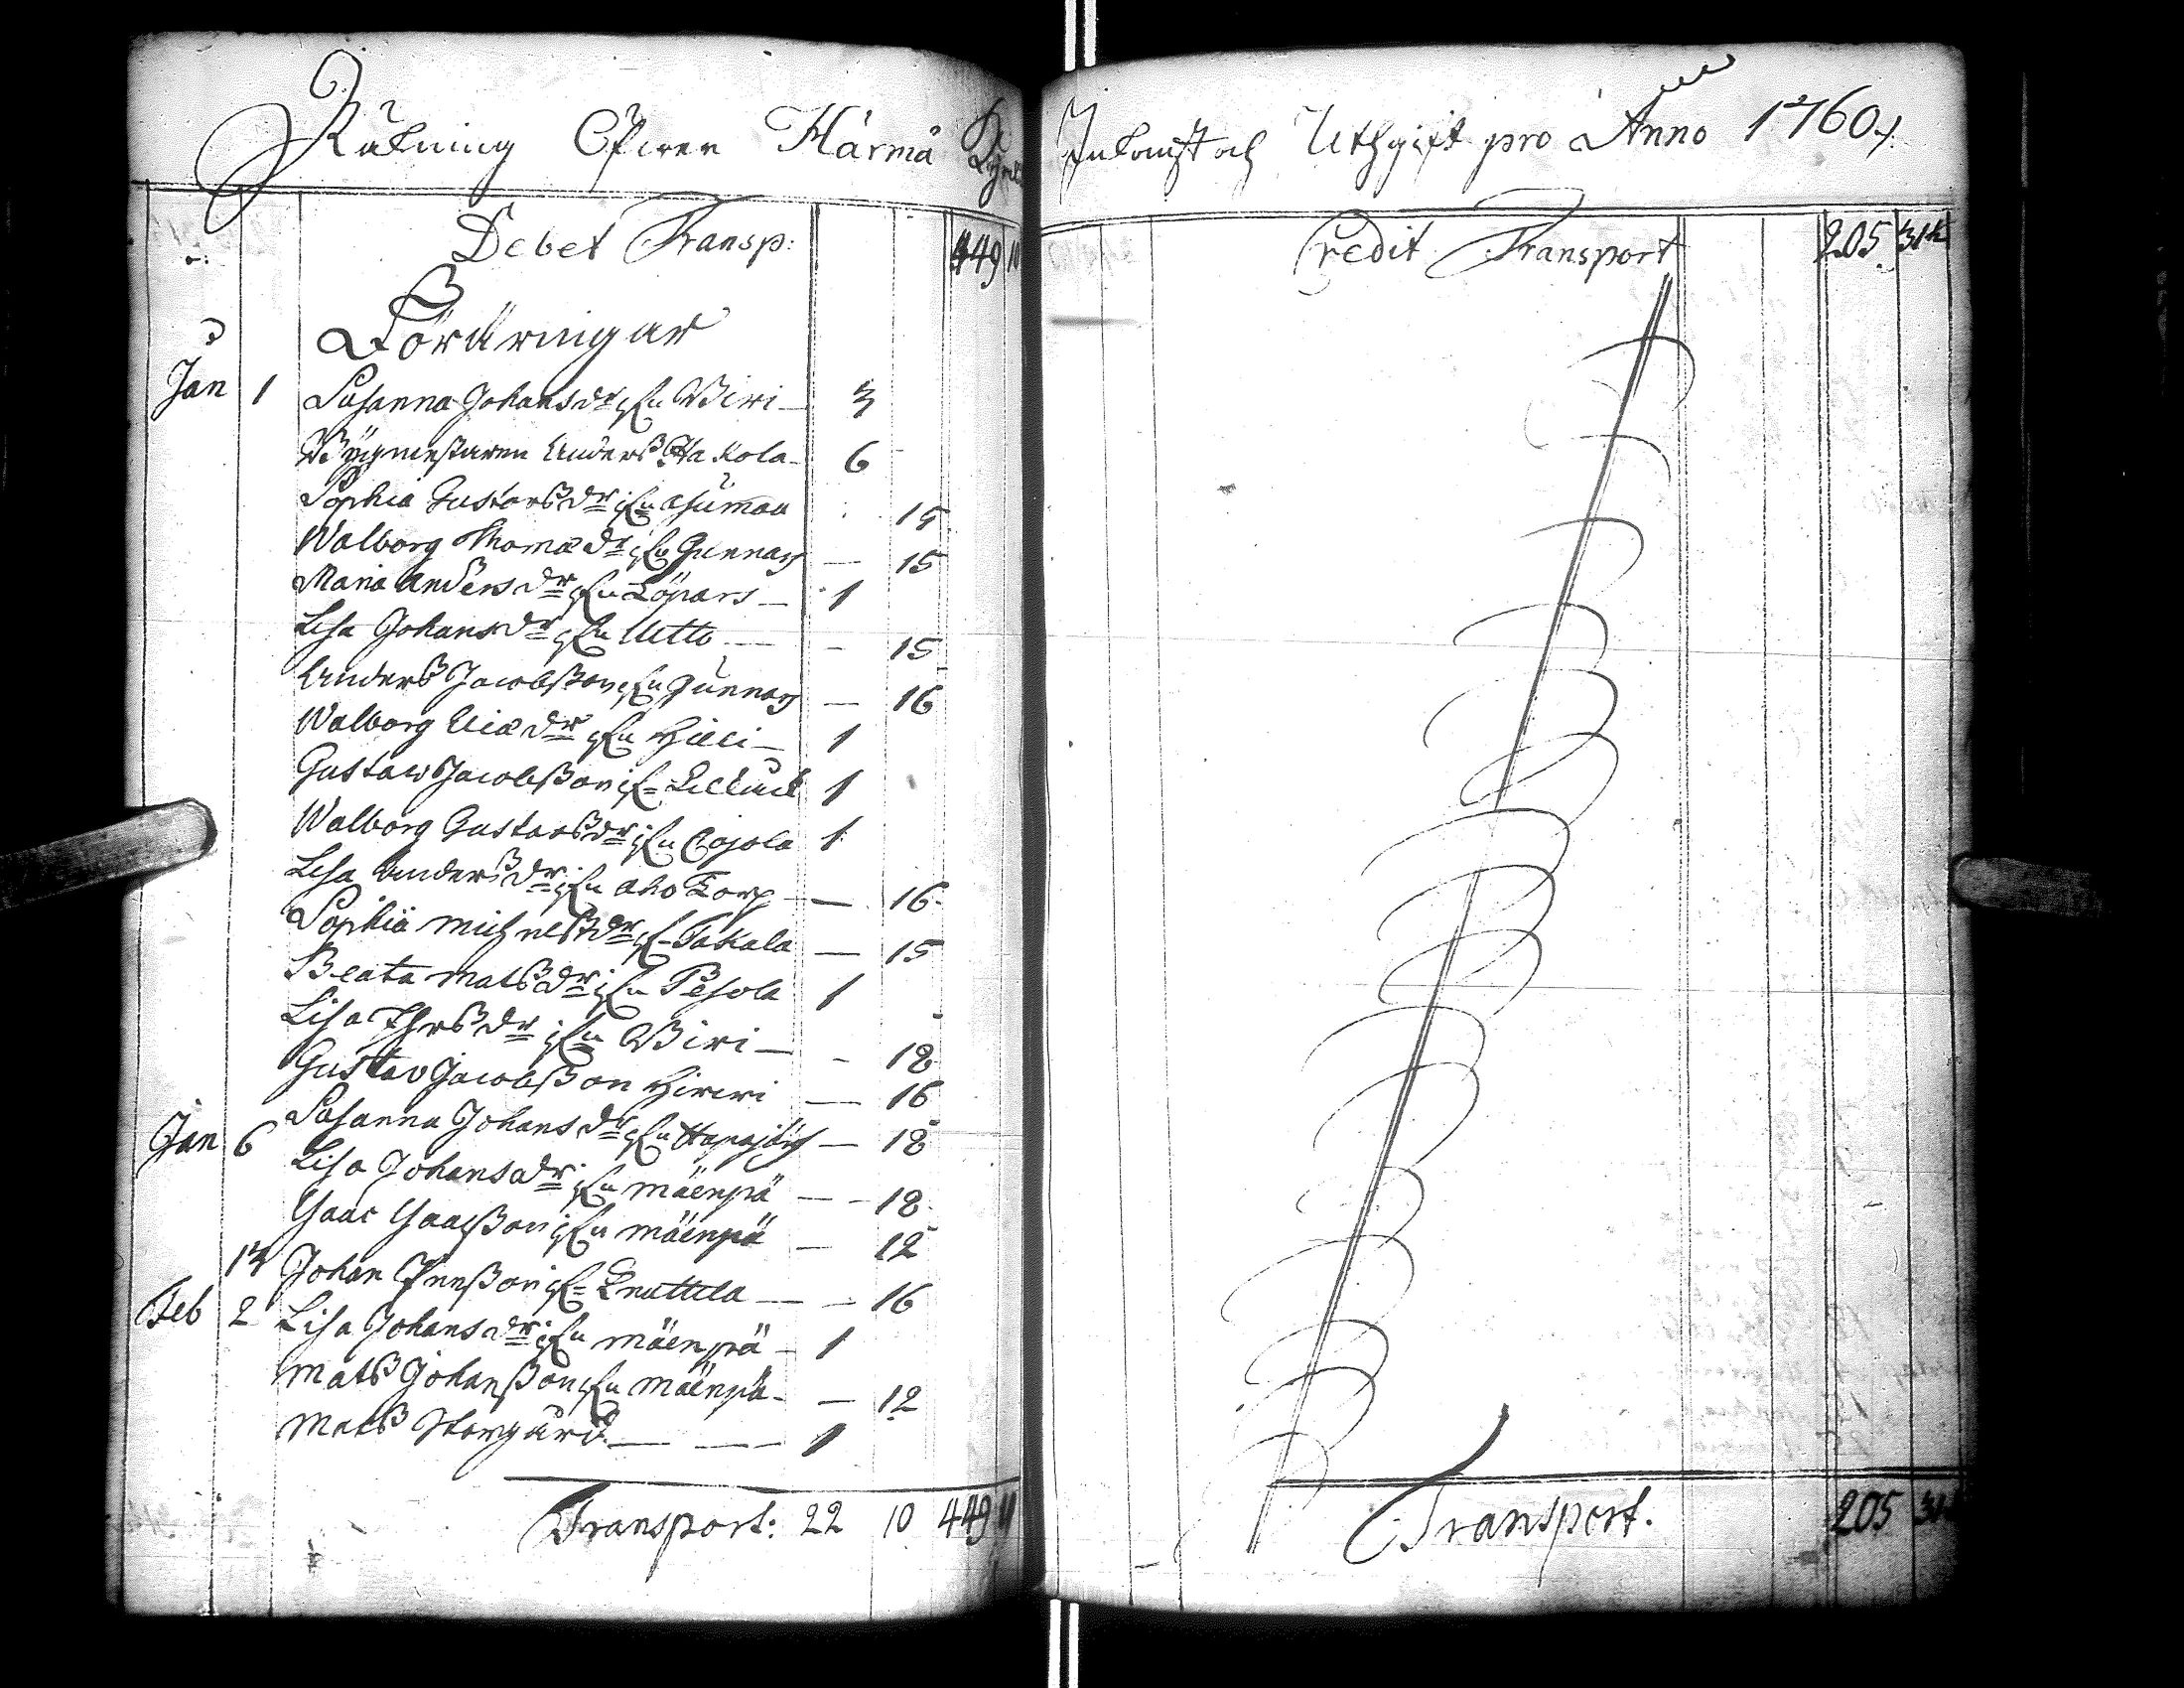 Räkning Öfwer Härmå Kyrkio
Debet Transp: 449 11
Föräringar
Jan 1 Susanna Johansdr ifrån Wiri — 3
Bygmestaren Anders Hakola 6
Sophia Gustafsdr ifrån 15
Walborg Thomædr ifrån Gunnars — 15
Maria Andersdr ifrån Löpars — 1
Lisa Johansdr ifrån Utti — 15
Anders Jacobsson ifrån Gunnars — 16
Walborg dr ifrån — 1
Gustaw Jacobsson ifrån 1
Walborg Gustafsdr ifrån 1
Lisa Andersdr ifrån Aho Torp — 16
Sophia Michelsdr ifrån Takala — 15
Beata Matsdr ifrån Pesola 1
Lisa dr ifrån Wiri — 18
Gustav Jacobsson Hirwi — 16
Jan 6 Susanna Johansdr ifrån — 18
Lisa Johansdr ifrån Mäenpä — 18
Isaac Isaacsson ifrån Mäenpä — 12
Johan ifrån Knuttila — 16
Feb 2 Lisa Johansdr ifrån Mäenpä — 1
Mats Johansson ifrån Mäenpä — 12
Mats Storgård — 1
Transport: 22 10 449 11
Inkomst och Uthgift pro Anno 1760
Credit Transport 205
Transport. 205